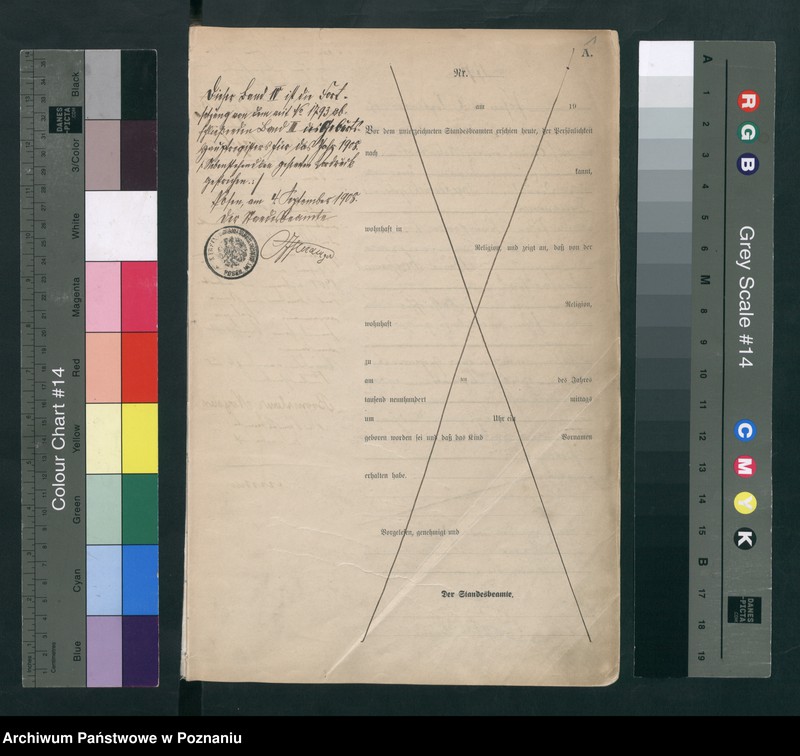 A.
Nr.
Dieser Band III ist die Fort-
setzung von dem mit No 1793 ab-
schließenden Band II des Geburts-
hauptregisters für das Jahr 1908.
gestrichen.
Posen, am 4. September 1908.
Der Standesbeamte
am 19
Vor dem unterzeichneten Standesbeamten erschien heute, der Persönlichkeit
nach
kannt,
wohnhaft in
Religion, und zeigt an, daß von der
Religion,
wohnhaft
zu
am ten des Jahres
tausend neunhundert mittags
um Uhr ein
geboren worden sei und daß das Kind Vornamen
erhalten habe.
Vorgelesen, genehmigt und
Der Standesbeamte.
POSEN
Colour Chart #14
Black
3/Color
White
Magenta
Red
Yellow
Green
Cyan
Blue
Centimetres
DANES
-PICTA
.COM
Grey Scale #14
R
G
B
C
M
Y
K
A
1
2
3
4
5
6
M
8
9
10
11
12
13
14
15
B
17
18
19
DANES
-PICTA
.COM
Archiwum Państwowe w Poznaniu